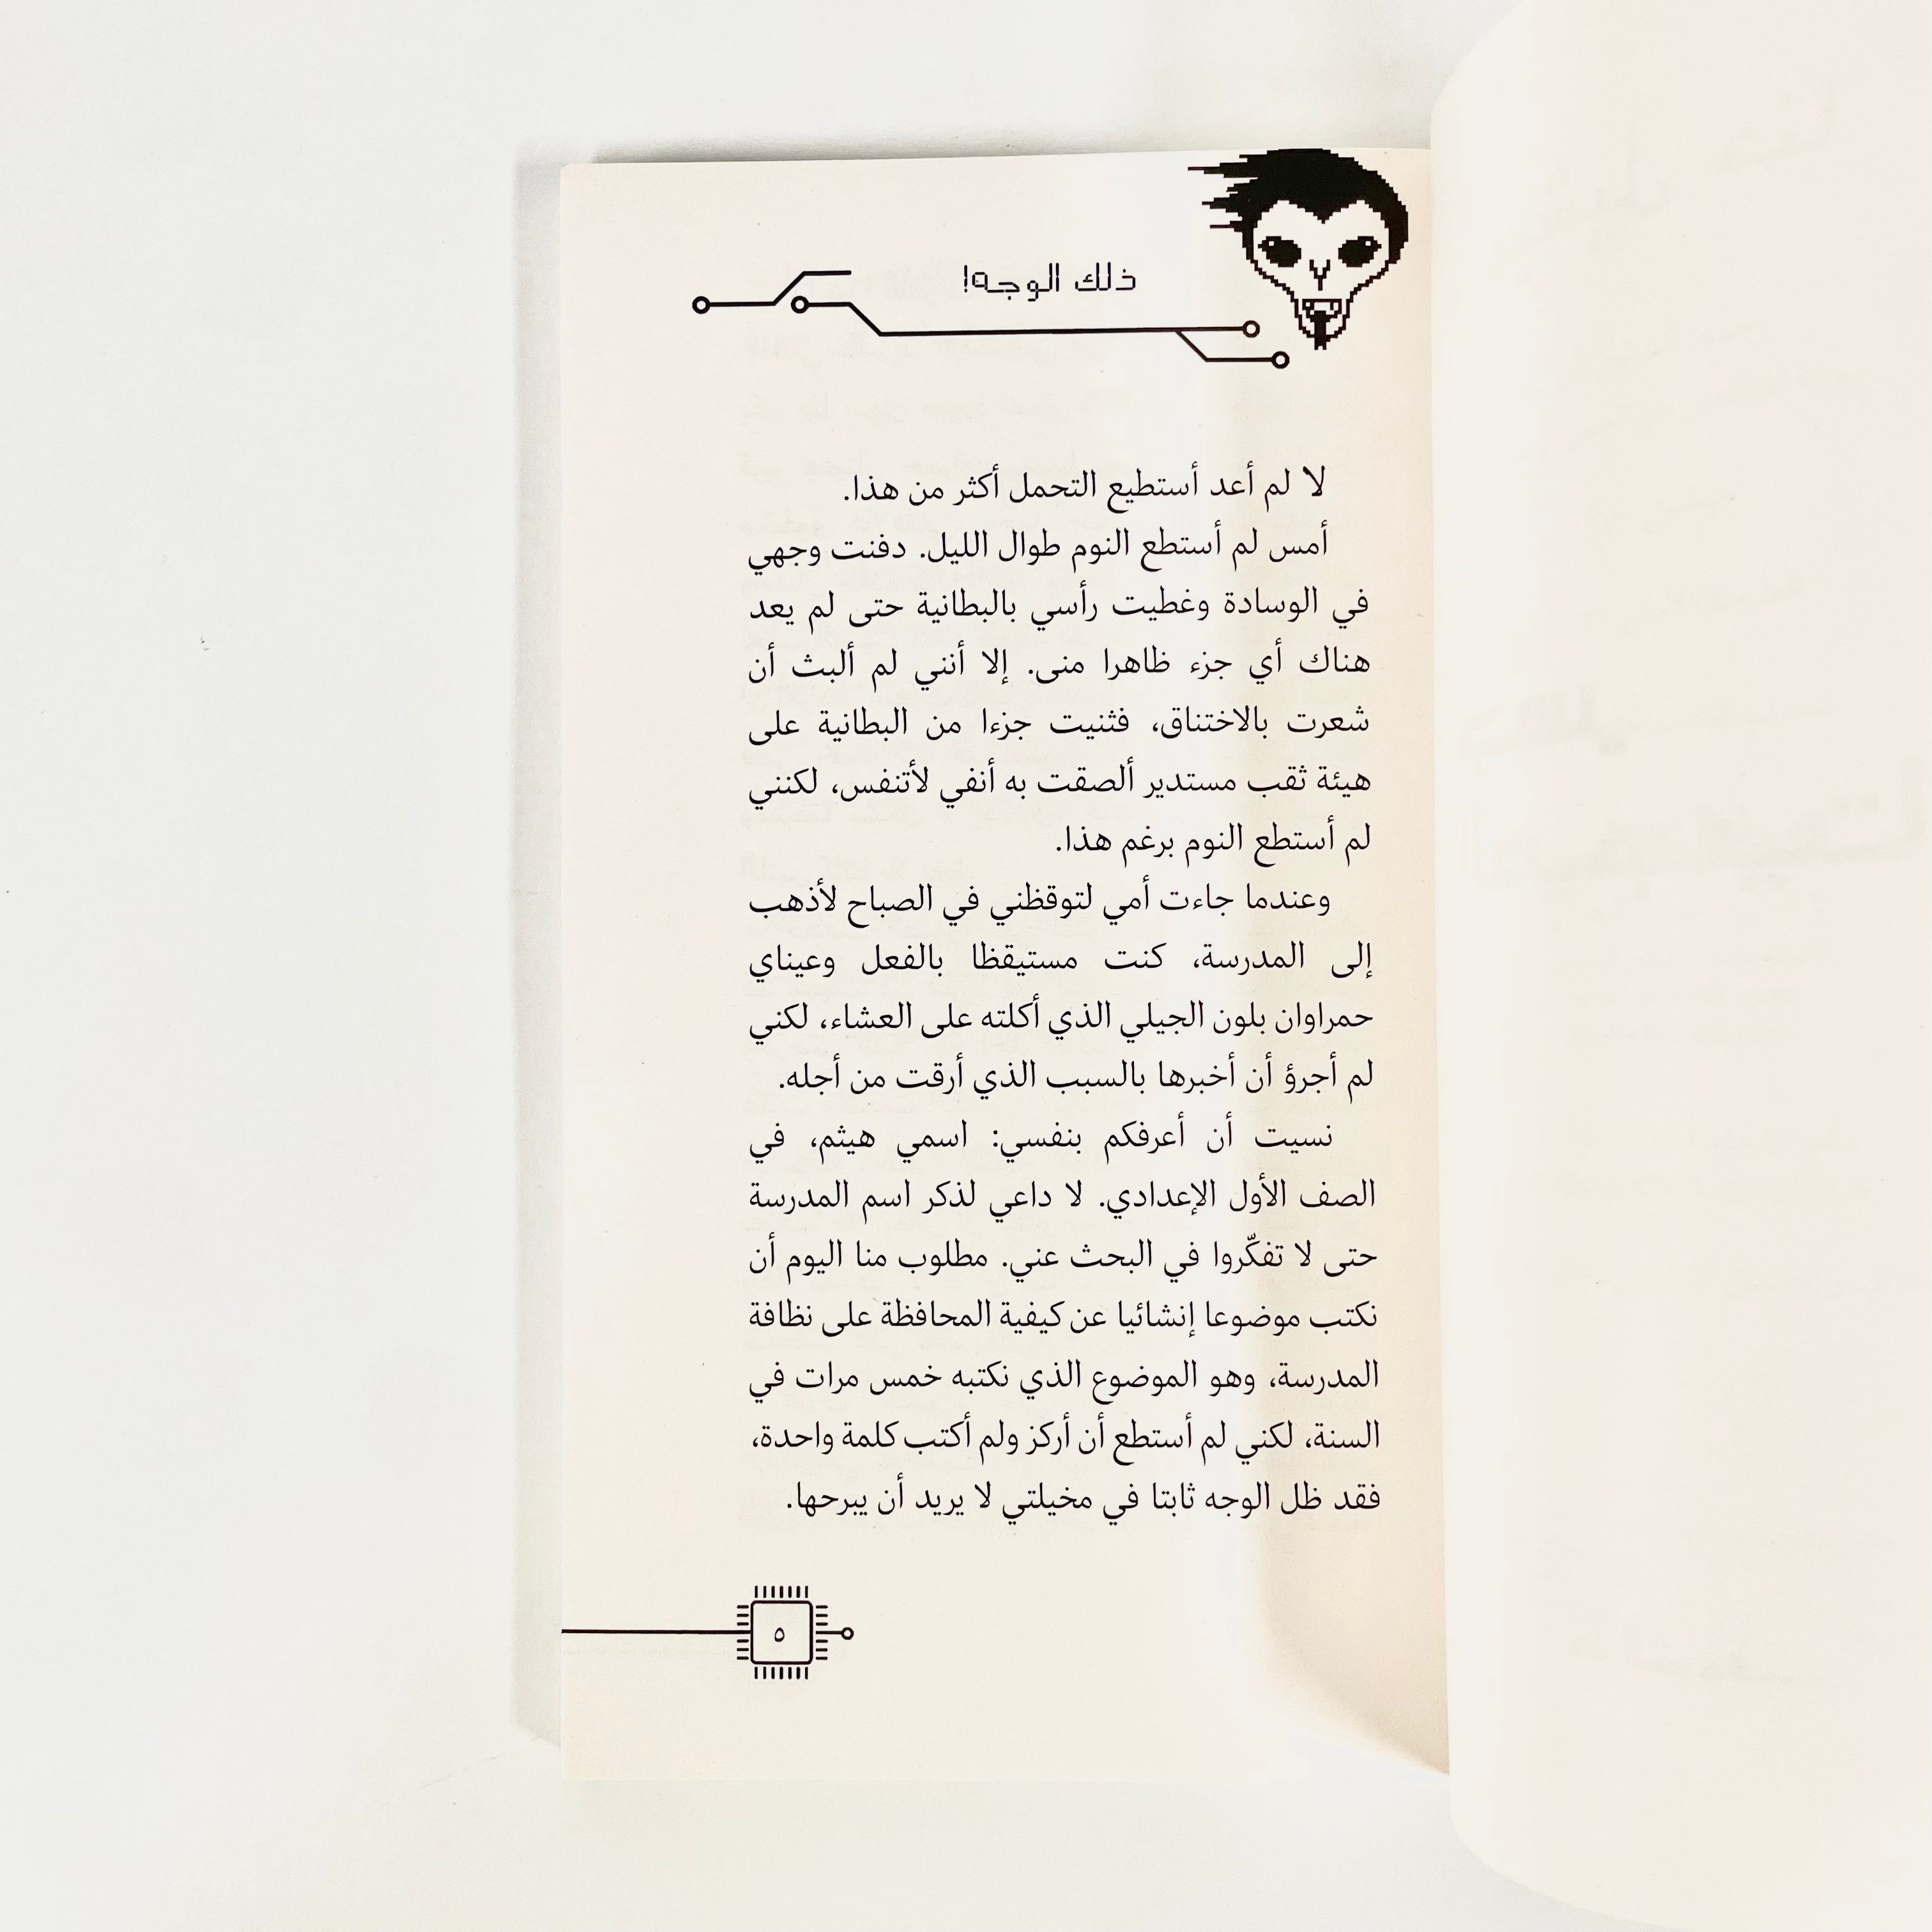 ذلك الوجه!
لا لم أعد أستطيع التحمل أكثر من هذا.
أمس لم أستطع النوم طوال الليل. دفنت وجهي
في الوسادة وغطيت رأسي بالبطانية حتى لم يعد
هناك أي جزء ظاهرا منى. إلا أنني لم ألبث أن
شعرت بالاختناق، فثنيت جزءا من البطانية على
هيئة ثقب مستدير ألصقت به أنفي لأتنفس، لكنني
لم أستطع النوم برغم هذا.
وعندما جاءت أمي لتوقظني في الصباح لأذهب
إلى المدرسة، كنت مستيقظا بالفعل وعيناي
حمراوان بلون الجيلي الذي أكلته على العشاء، لكني
لم أجرؤ أن أخبرها بالسبب الذي أرقت من أجله.
نسيت أن أعرفكم بنفسي: اسمي هيثم، في
الصف الأول الإعدادي. لا داعي لذكر اسم المدرسة
حتى لا تفكّروا في البحث عني. مطلوب منا اليوم أن
نكتب موضوعا إنشائيا عن كيفية المحافظة على نظافة
المدرسة، وهو الموضوع الذي نكتبه خمس مرات في
السنة، لكني لم أستطع أن أركز ولم أكتب كلمة واحدة،
فقد ظل الوجه ثابتا في مخيلتي لا يريد أن يبرحها.
٥